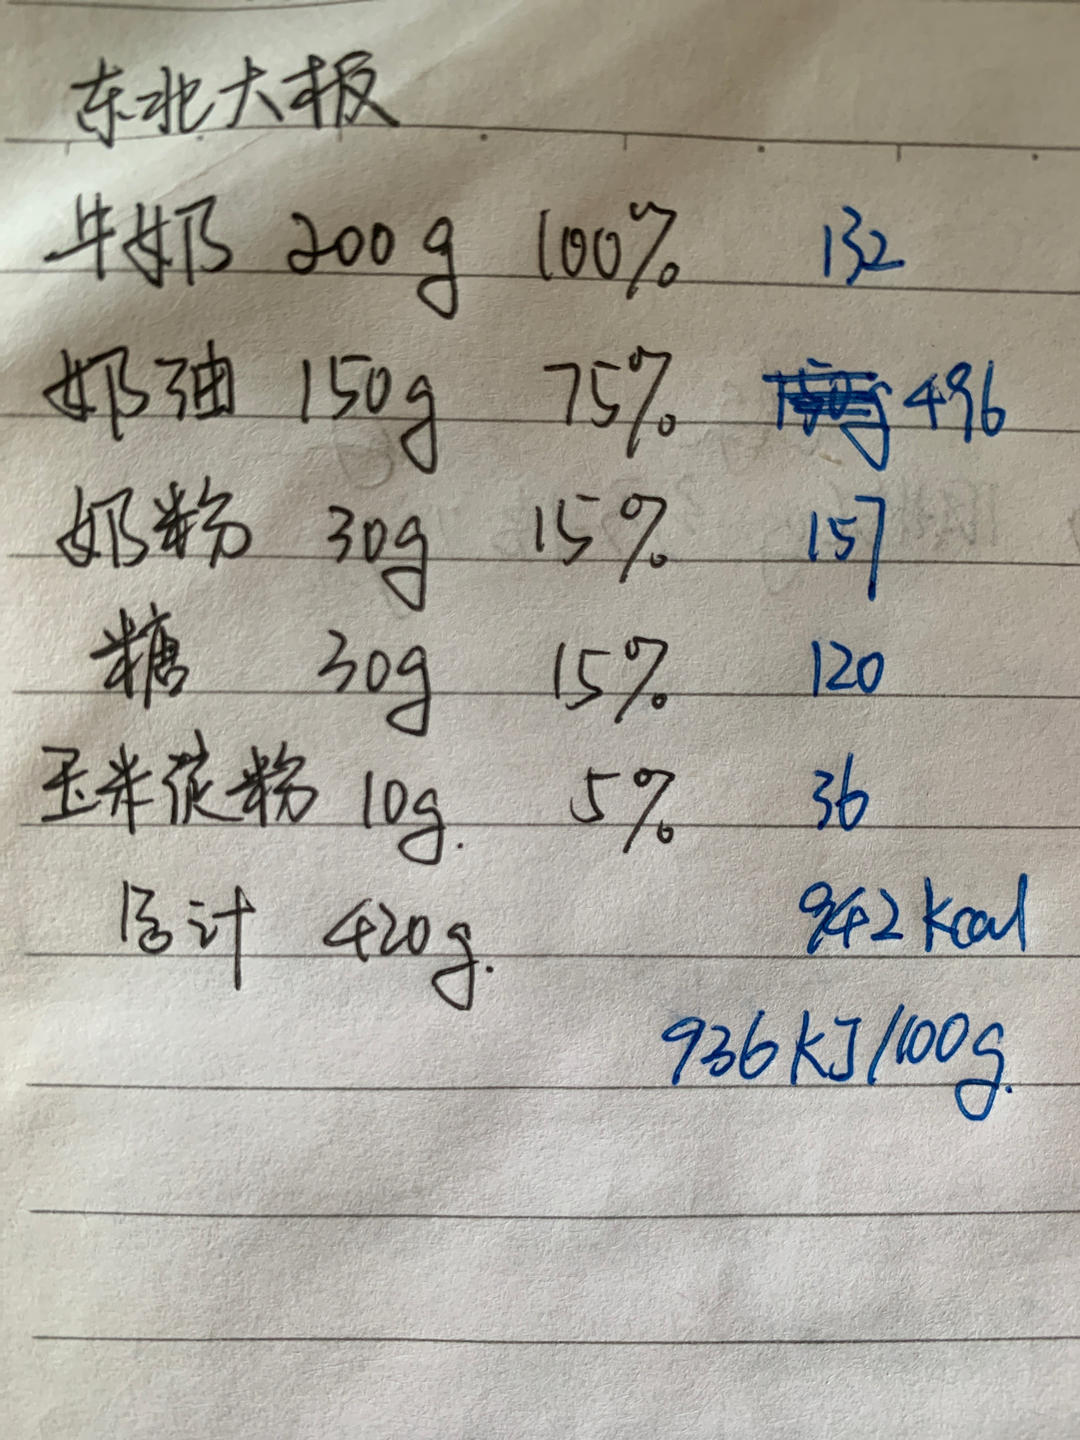 东北大板
牛奶 200g 100% 132
奶油 150g 75% 496
奶粉 30g 15% 157
糖 30g 15% 120
玉米淀粉 10g. 5% 36
总计 420g. 942 kcal
936 kJ/100g.